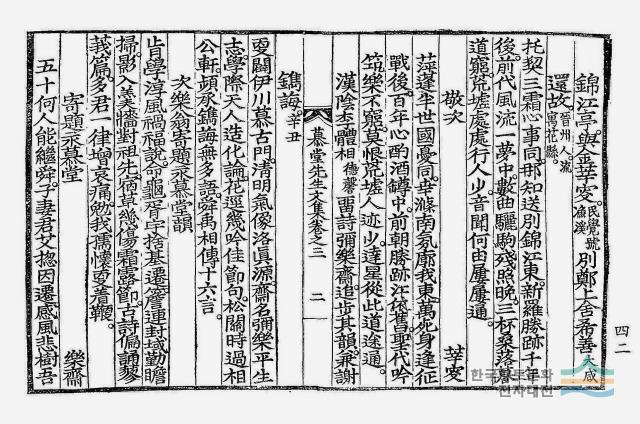 錦江亭與金莘叟民覺號漁溪別鄭上舍希善大咸
還故晉州人流寓花縣
托契三霜心事同那知送別錦江東新羅勝跡千年
後前代風流一夢中數曲驪駒殘照晚三杯桑落
道窮荒墟處處行人少音聞何由屢屢通
敬次 莘叟
萍蓬半世國憂同世滌南氛廓我東萬死身逢征
戰後百年心酌酒罇中前朝勝跡江依舊聖代吟
筇樂不窮莫恨荒墟人迹少達星從此道途通
漢陰李體相德馨聖詩彌樂齋追步其韻兼謝
鐫誨辛丑
慕堂先生文集卷之三 二
更闢伊川慕古門淸明氣像洛眞源齋名彌樂平生
志學際天人造化論花逕幾吟佳節句松關時過相
公軒頻承鐫誨無多語舜禹相傳十六言
次樂翁寄題永慕堂韻
肯學淳風禍福說命龜胥宇捨基遷齋連封域勤瞻
掃影入羹墻對祖先宿草幾傷霜露節古詩偏誦蓼
莪篇多君一律增哀痛勉我孺懷更着鞭
寄題永慕堂 樂齋
五十何人能繼舜子妻君艾揔因遷感風悲樹吾
四二
한국향토문화전자대전